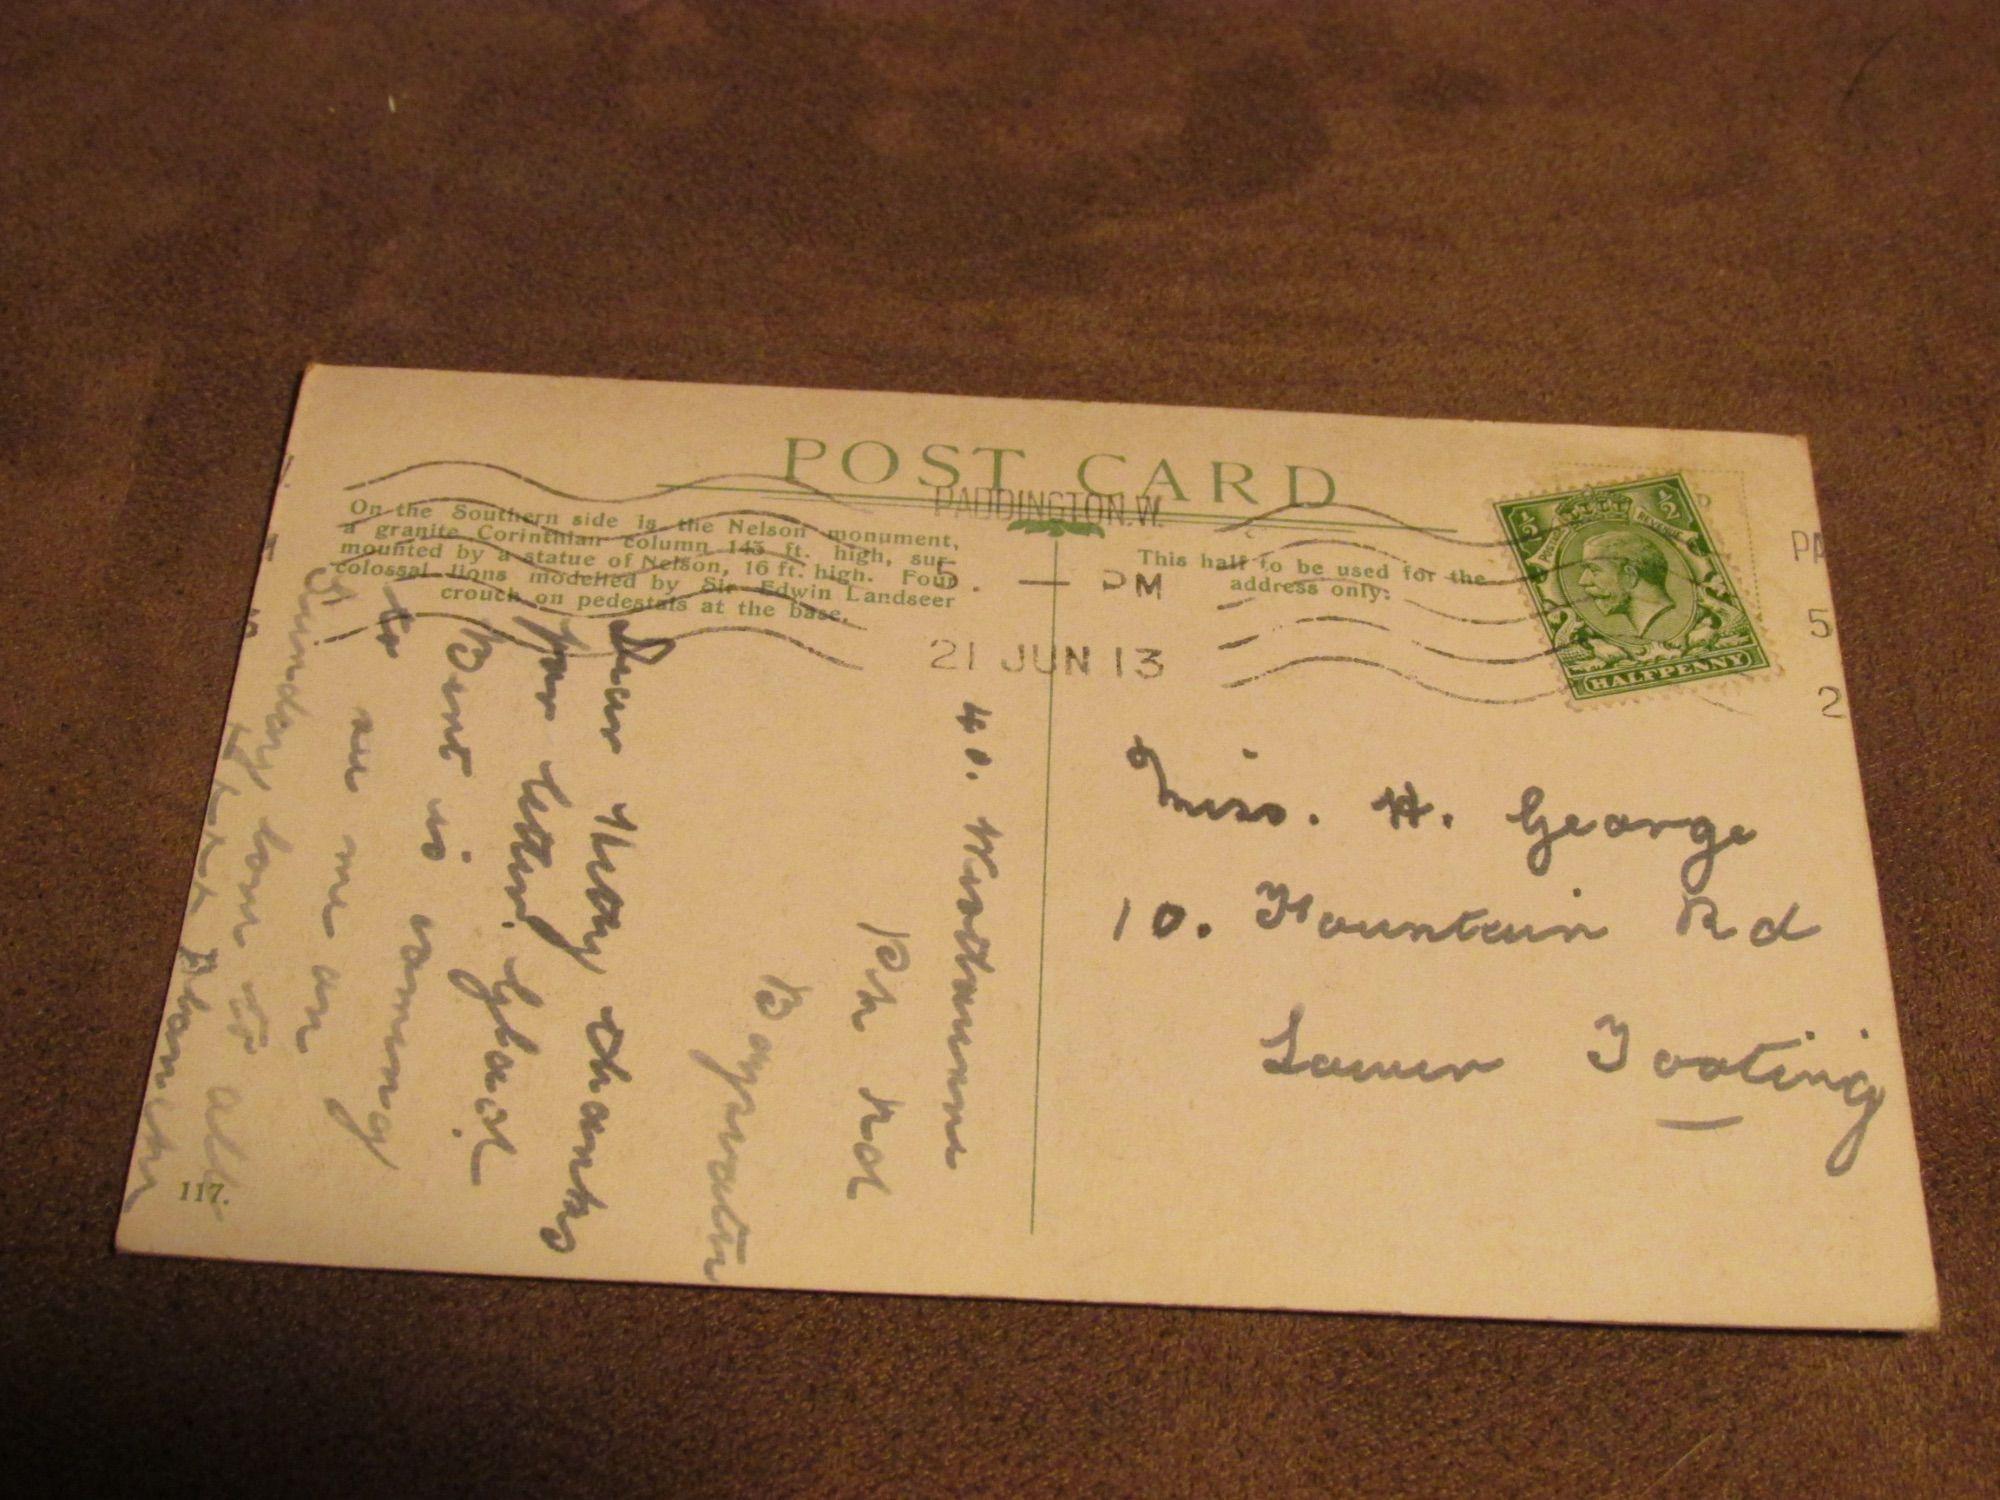 POST CARD
On the Southern side is the Nelson monument,
a granite Corinthian column 145 ft. high, sur-
mounted by a statue of Nelson, 16 ft. high. Four
colossal lions modelled by Sir Edwin Landseer
crouch on pedestals at the base.
PADDINGTON.W.
5. — PM
21 JUN 13
This half to be used for the
address only:
½ ½
POSTAGE REVENUE
HALFPENNY
PA
5
2
Miss. H. George
10. Fountain Rd
Lower Tooting
40.
Rd
Bayswater
Dear thanks
for letter. Glad
Bert is coming
to see me on
Sunday love to all
117.